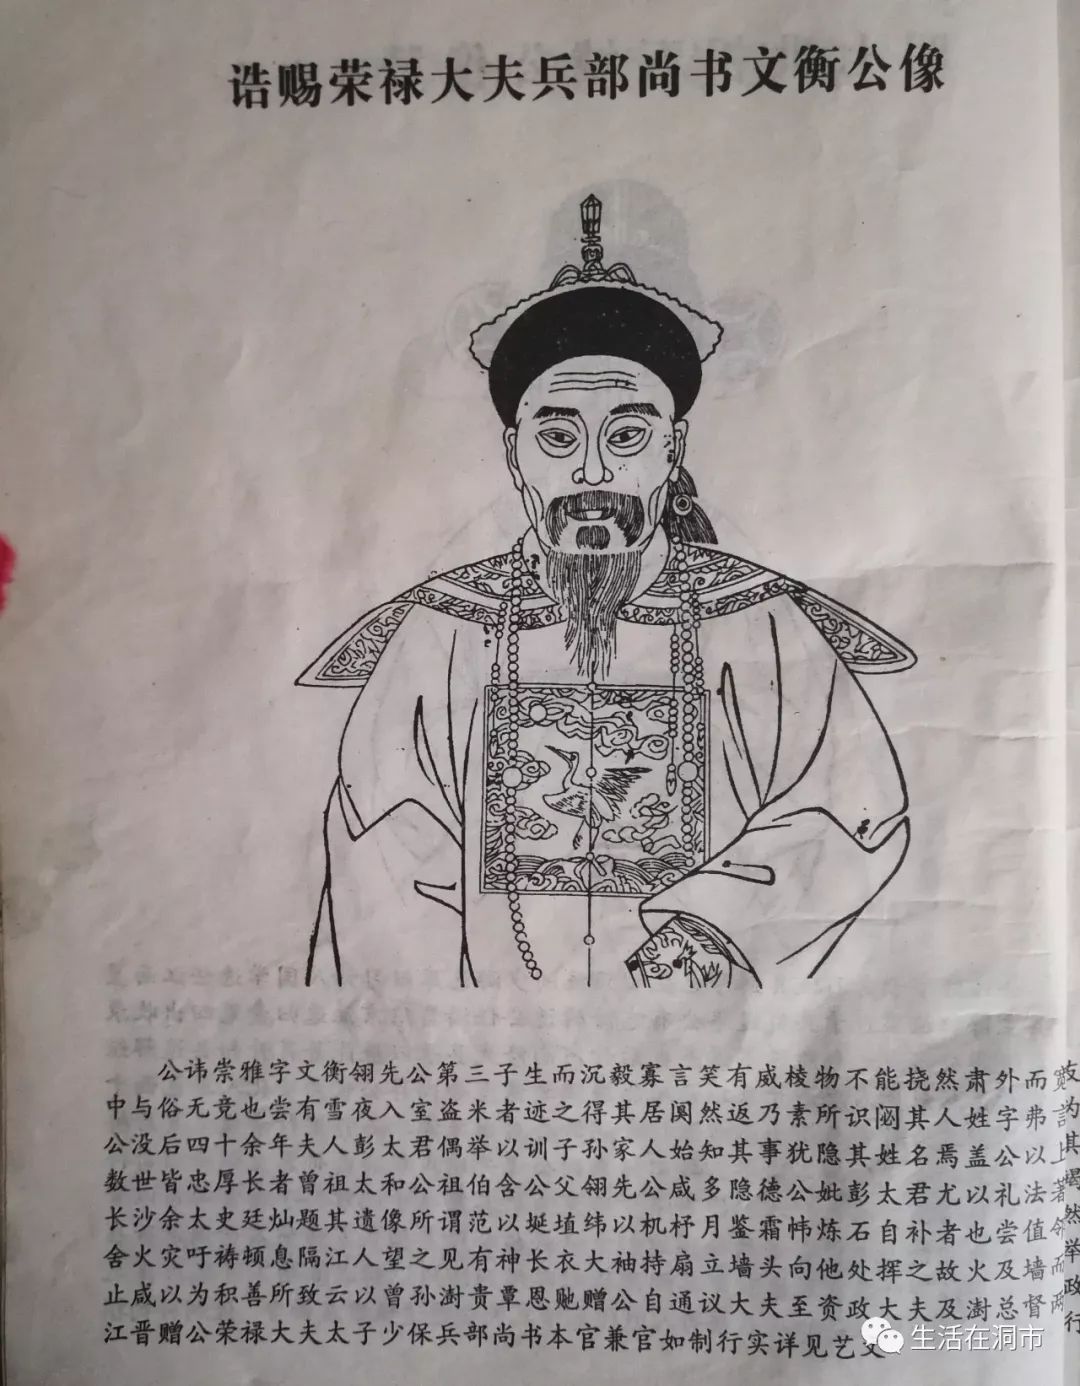 诰赐荣禄大夫兵部尚书文衡公像
公讳崇雅字文衡翎先公第三子生而沉毅寡言笑有威棱物不能挠然肃外而宽
中与俗无竞也尝有雪夜入室盗米者迹之得其居阒然返乃素所识閟其人姓字弗言
公没后四十余年夫人彭太君偶举以训子孙家人始知其事犹隐其姓名焉盖公以上
数世皆忠厚长者曾祖太和公祖伯含公父翎先公咸多隐德公妣彭太君尤以礼法著
长沙余太史廷灿题其遗像所谓范以埏埴纬以机杼月鉴霜帏炼石自补者也尝值邻
舍火灾吁祷顿息隔江人望之见有神长衣大袖持扇立墙头向他处挥之故火及墙而
止咸以为积善所致云以曾孙澍贵覃恩貤赠公自通议大夫至资政大夫及澍总督两
江晋赠公荣禄大夫太子少保兵部尚书本官兼官如制行实详见艺文
生活在洞市